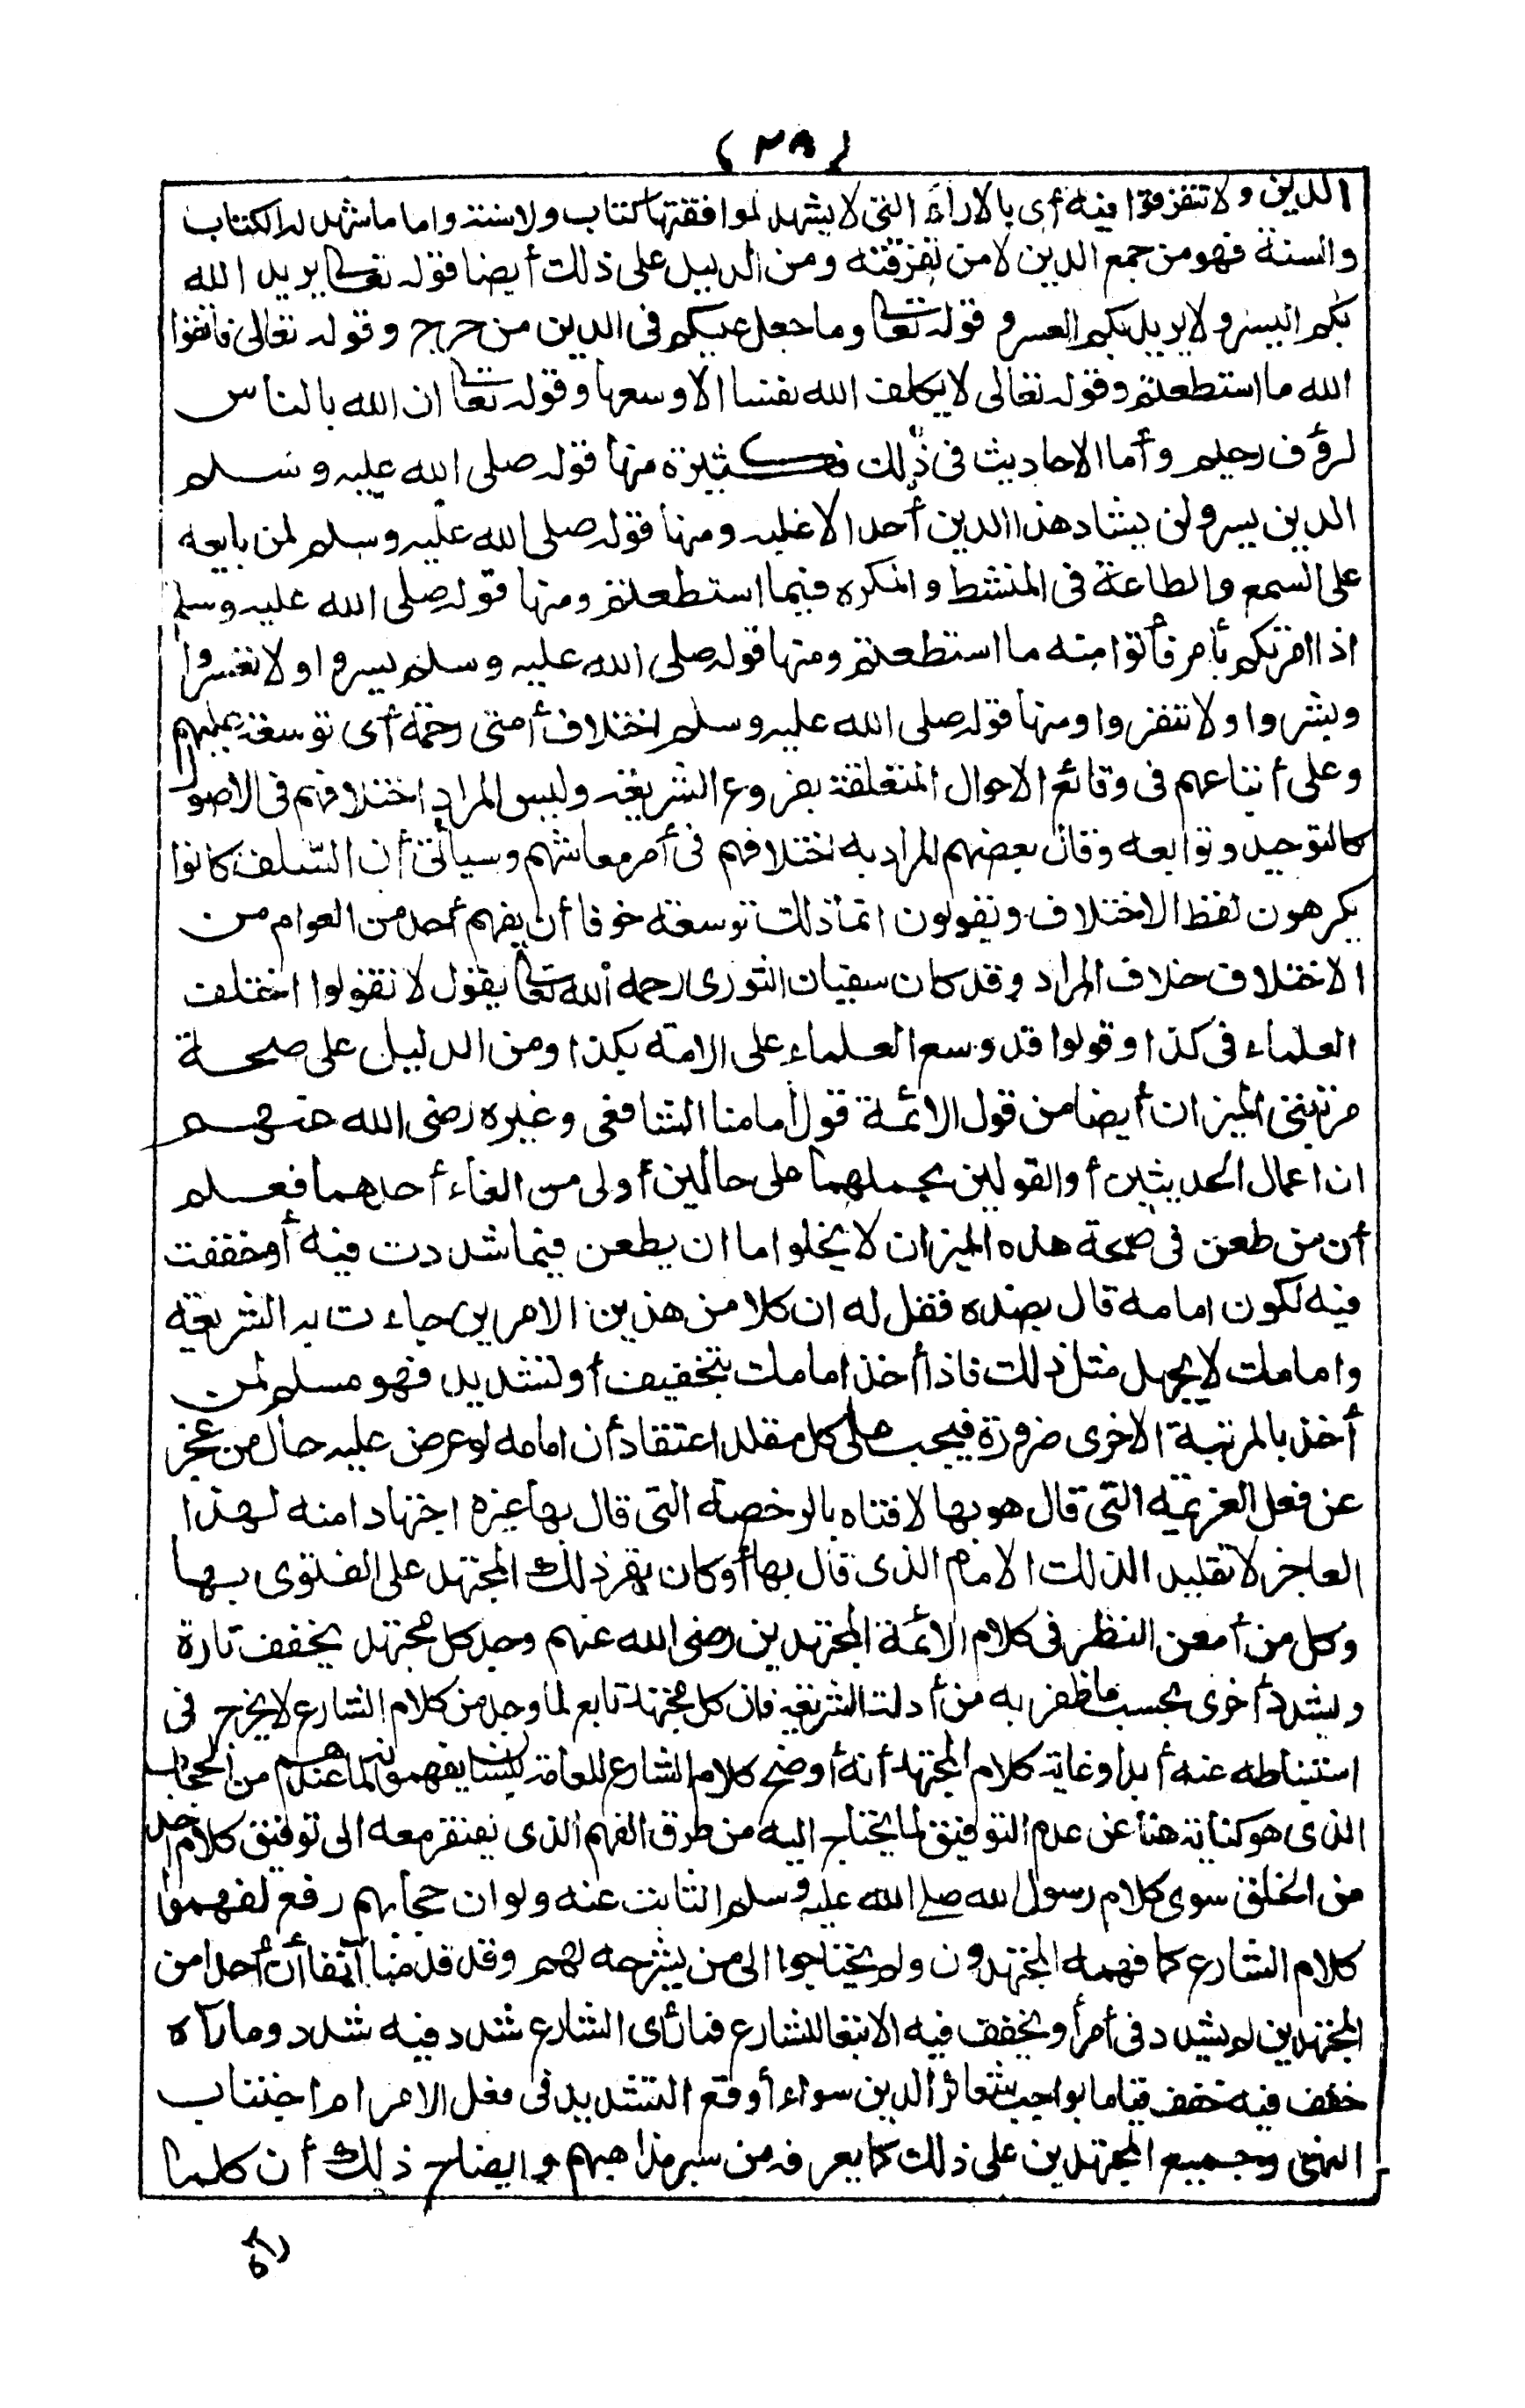 (٣٨)
الدين ولا تتفرقوا فيه أى بالاراء التى لا يشهد لموافقتها كتاب ولا سنة واما ما شهد له الكتاب
والسنة فهو من جمع الدين لا من تفرقته ومن الدليل على ذلك أيضا قوله تعالى يريد الله
بكم اليسر ولا يريد بكم العسر و قوله تعالى وما جعل عليكم فى الدين من حرج وقوله تعالى فاتقوا
الله ما استطعتم وقوله تعالى لا يكلف الله نفسا الا وسعها وقوله تعالى ان الله بالناس
لرؤف رحيم وأما الاحاديث فى ذلك فكثيرة منها قوله صلى الله عليه وسلم
الدين يسر ولن يشاد هذا الدين أحد الا غلبه ومنها قوله صلى الله عليه وسلم لمن بايعه
على السمع والطاعة فى المنشط والمكره فيما استطعتم ومنها قوله صلى الله عليه وسلم
اذا امرتكم بأمر فأتوا منه ما استطعتم ومنها قوله صلى الله عليه وسلم يسروا ولا تعسروا
وبشروا ولا تنفروا ومنها قوله صلى الله عليه وسلم اختلاف أمتى رحمة أى توسعة عليهم
وعلى أتباعهم فى وقائع الاحوال المتعلقة بفروع الشريعة وليس المراد اختلافهم فى الاصول
كالتوحيد وتوابعه وقال بعضهم المراد به اختلافهم فى أمر معاشهم وسيأتى أن السلف كانوا
يكرهون لفظ الاختلاف ويقولون انما ذلك توسعة خوفا أن يفهم أحد من العوام من
الاختلاف خلاف المراد وقد كان سفيان الثورى رحمه الله تعالى يقول لا تقولوا اختلف
العلماء فى كذا وقولوا قد وسع العلماء على الامة بكذا ومن الدليل على صحة
مرتبتى الميزان أيضا من قول الائمة قول امامنا الشافعى وغيره رضى الله عنهم
ان اعمال الحديثين أو القولين بحملهما على حالين أولى من الغاء أحدهما فعلم
أن من طعن فى صحة هذه الميزان لا يخلو اما ان يطعن فيما شددت فيه أو خففت
فيه لكون امامه قال بضده فقل له ان كلا من هذين الامرين جاءت به الشريعة
وامامك لا يجهل مثل ذلك فاذا أخذ امامك بتخفيف أو تشديد فهو مسلم لمن
أخذ بالمرتبة الاخرى ضرورة فيجب على كل مقلد اعتقاد أن امامه لو عرض عليه حال من عجز
عن فعل العزيمة التى قال هو بها لافتاه بالرخصة التى قال بها غيره اجتهادا منه لهذا
العاجز لا تقليدا لذلك الامام الذى قال بها أو كان يقر ذلك المجتهد على الفتوى بها
وكل من أمعن النظر فى كلام الائمة المجتهدين رضى الله عنهم وجد كل مجتهد يخفف تارة
ويشدد أخرى بحسب ما ظفر به من أدلة الشريعة فان كل مجتهد تابع لما وجد من كلام الشارع لا يخرج فى
استنباطه عنه أبدا وغاية كلام المجتهد أنه أوضح كلام الشارع للعامة بلسان يفهمونه لما عندهم من الحجاب
الذى هو كناية هنا عن عدم التوفيق لما يحتاج اليه من طرق الفهم الذى يفتقر معه الى توفيق كلام أحد
من الخلق سوى كلام رسول الله صلى الله عليه وسلم الثابت عنه ولو ان حجابهم رفع لفهموا
كلام الشارع كما فهمه المجتهدون ولم يحتاجوا الى من يشرحه لهم وقد قدمنا آنفا أن أحدا من
المجتهدين لم يشدد فى أمر أو يخفف فيه الا تبعا للشارع فما رأى الشارع شدد فيه شدد وما رآه
خفف فيه خفف قياما بواجب شعائر الدين سواء أوقع التشديد فى فعل الامر ام اجتناب
النهى وجميع المجتهدين على ذلك كما يعرفه من سبر مذاهبهم وايضاح ذلك أن كلما